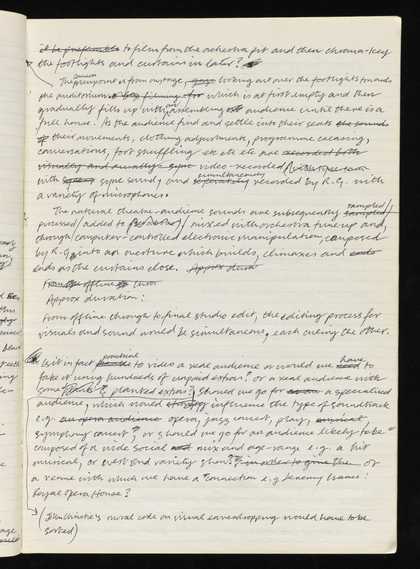 it be preferable to film from the orchestra pit and then chroma-key
the footlights and curtains in later?
The camera viewpoint is from onstage, looking out over the footlights towards
the auditorium which is at first empty and then
gradually fills up with an assembling audience until there is a
full house. As the audience find and settle into their seats the sounds
of their movements, clothing adjustments, programme creasing,
conversations, foot shuffling etc etc are recorded both
visually and aurally sync video-recorded
with sync sound, and simultaneously recorded by R.G. with
a variety of microphones.
The natural theatre-audience sounds are subsequently sampled/
processed/added to/ mixed with orchestra tune up and,
through computer-controlled electronic manipulation, composed
by R.G. into an overture which builds, climaxes and ends
ends as the curtains close. Approx durat
From the offline
Approx duration:
From offline through to final studio edit, the editing process for
visuals and sound would be simultaneous, each cueing the other.
Is it in fact practical to video a real audience or would we have to
fake it using hundreds of unpaid extras? or a real audience with
some planted extras? Should we go for a specialised
audience, which would influence the type of soundtrack
e.g. opera, jazz concert, play,
symphony concert?, or should we go for an audience likely to be
composed of a wide social mix and age-range e.g. a hit
musical, or west end variety show? in order to give the or
a venue with which we have a connection e.g. Jeremy Isaacs:
Royal Opera House?
(John Christie's moral code on visual eavesdropping would have to be
sorted)